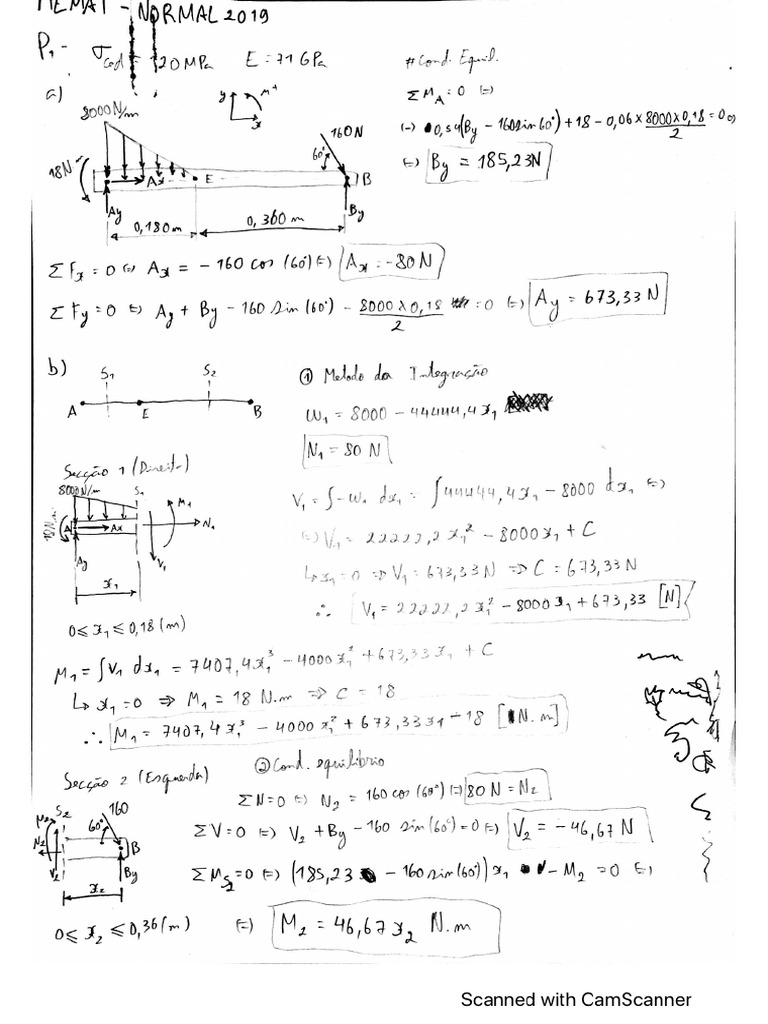 MEMAT - NORMAL 2019
P1 - σced = 120 MPa E = 71 GPa
# Cond. Equil.
a)
ΣMA = 0 (=)
(=) 0,54(By - 160 sin 60°) + 18 - 0,06 × 8000 × 0,18 / 2 = 0 (=)
(=) By = 185,23 N
8000 N/m
y
M+
x
160 N
60°
18 N
Ax
E
B
Ay
By
0,180 m
0,360 m
ΣFx = 0 (=) Ax = - 160 cos (60°) (=) Ax = - 80 N
ΣFy = 0 (=) Ay + By - 160 sin (60°) - 8000 × 0,18 / 2 = 0 (=) Ay = 673,33 N
b)
S1
S2
A
E
B
① Metodo da Integração
W1 = 8000 - 44444,4 x1
N1 = 80 N
Secção 1 (Direita)
8000 N/m
S1
M1
A
Ax
N1
Ay
V1
x1
0 ≤ x1 ≤ 0,18 (m)
V1 = ∫ -W1 dx1 = ∫ 44444,4 x1 - 8000 dx1 (=)
(=) V1 = 22222,2 x1² - 8000 x1 + C
↳ x1 = 0 => V1 = 673,33 N => C = 673,33 N
∴ V1 = 22222,2 x1² - 8000 x1 + 673,33 [N]
M1 = ∫ V1 dx1 = 7407,4 x1³ - 4000 x1² + 673,33 x1 + C
↳ x1 = 0 => M1 = 18 N.m => C = 18
∴ M1 = 7407,4 x1³ - 4000 x1² + 673,33 x1 + 18 [N.m]
Secção 2 (Esquerda)
② Cond. equilibrio
S2
160
M2
60°
N2
B
V2
By
x2
0 ≤ x2 ≤ 0,36 (m)
ΣN = 0 (=) N2 = 160 cos (60°) (=) 80 N = N2
ΣV = 0 (=) V2 + By - 160 sin (60°) = 0 (=) V2 = - 46,67 N
ΣMS2 = 0 (=) (185,23 - 160 sin (60°)) x1 - M2 = 0 (=)
(=) M2 = 46,67 x2 N.m
Scanned with CamScanner